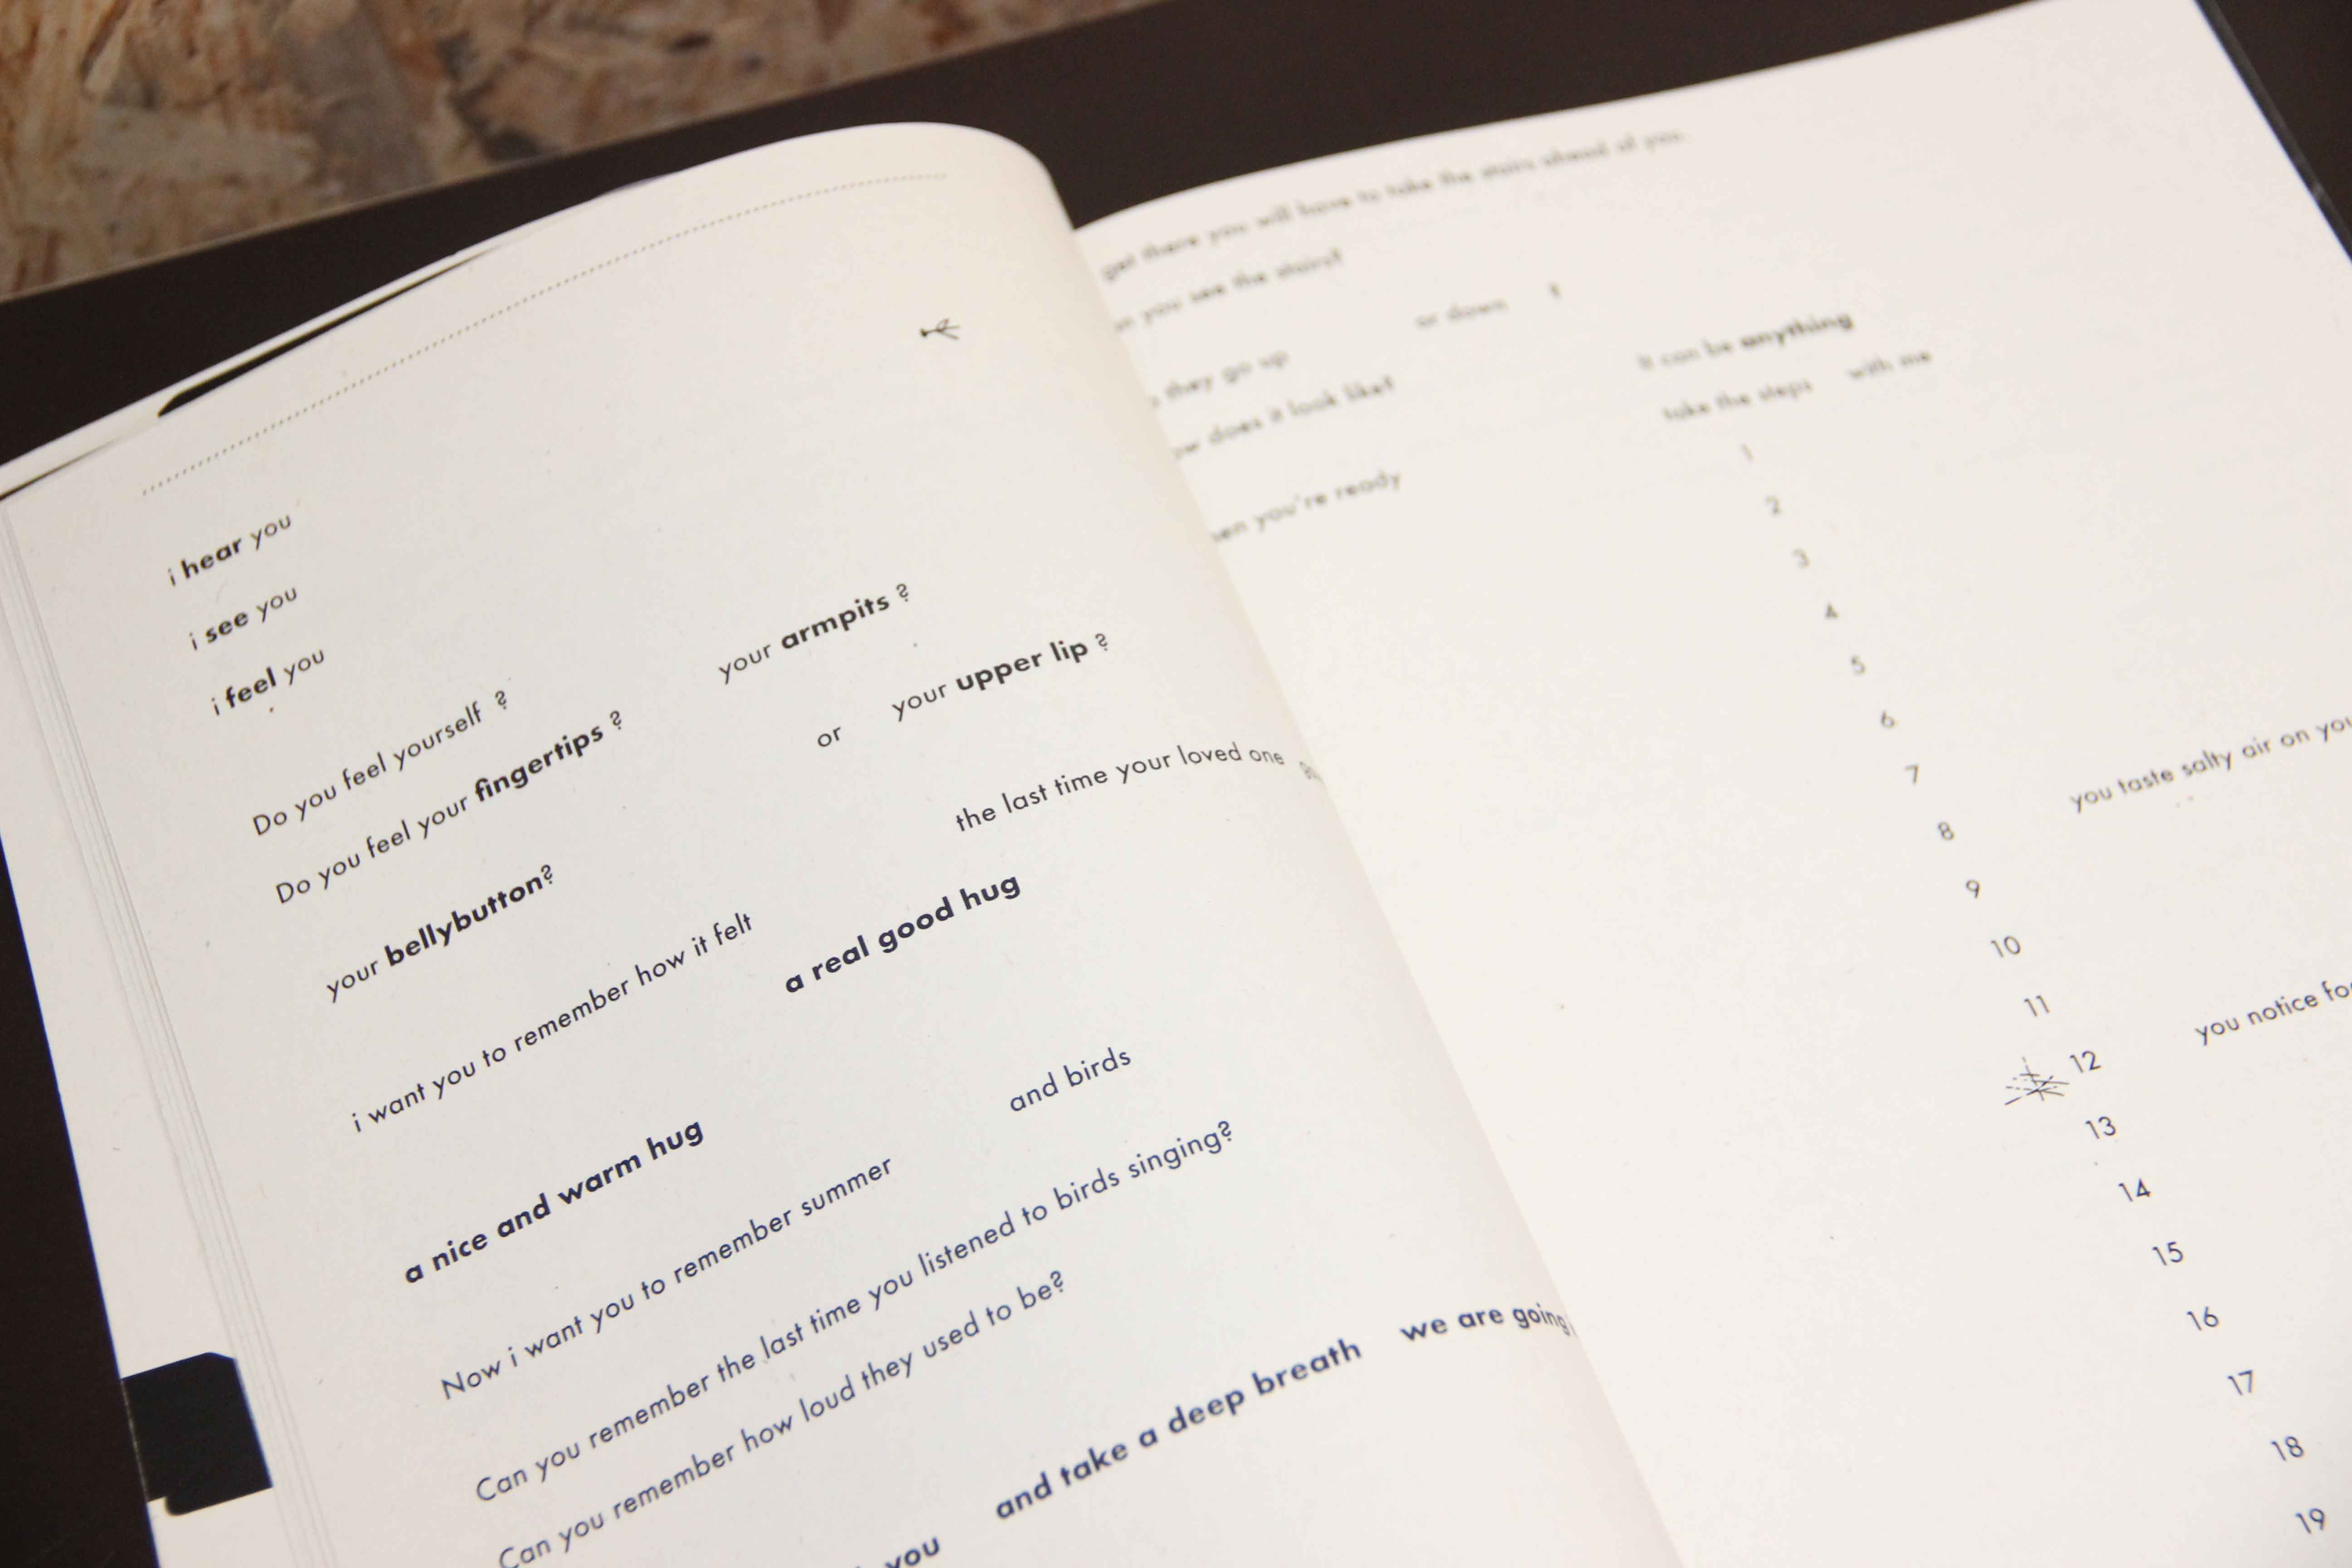 i hear you
i see you
i feel you
Do you feel yourself ?
Do you feel your fingertips ? your armpits ?
your bellybutton? or your upper lip ?
i want you to remember how it felt the last time your loved one
a real good hug
a nice and warm hug
Now i want you to remember summer and birds
Can you remember the last time you listened to birds singing?
Can you remember how loud they used to be?
you and take a deep breath we are going
get there you will have to take the stairs ahead of you.
you see the stairs?
they go up or down ?
does it look like? It can be anything
you're ready take the steps with me
1
2
3
4
5
6
7
8 you taste salty air on
9
10
11
12 you notice
13
14
15
16
17
18
19